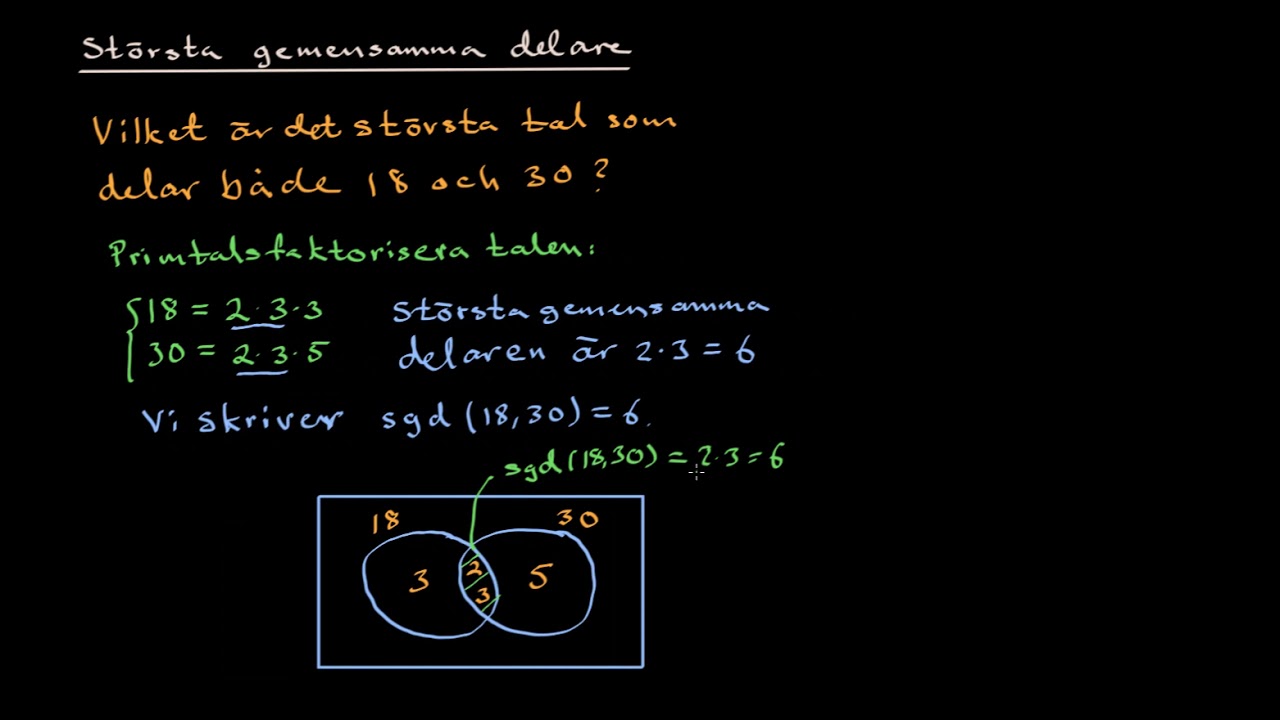 Största gemensamma delare
Vilket är det största tal som
delar både 18 och 30?
Primtalsfaktorisera talen:
18 = 2·3·3
30 = 2·3·5
Största gemensamma
delaren är 2·3 = 6
Vi skriver sgd (18,30) = 6.
sgd (18,30) = 2·3 = 6
18 30
3 2 5
3